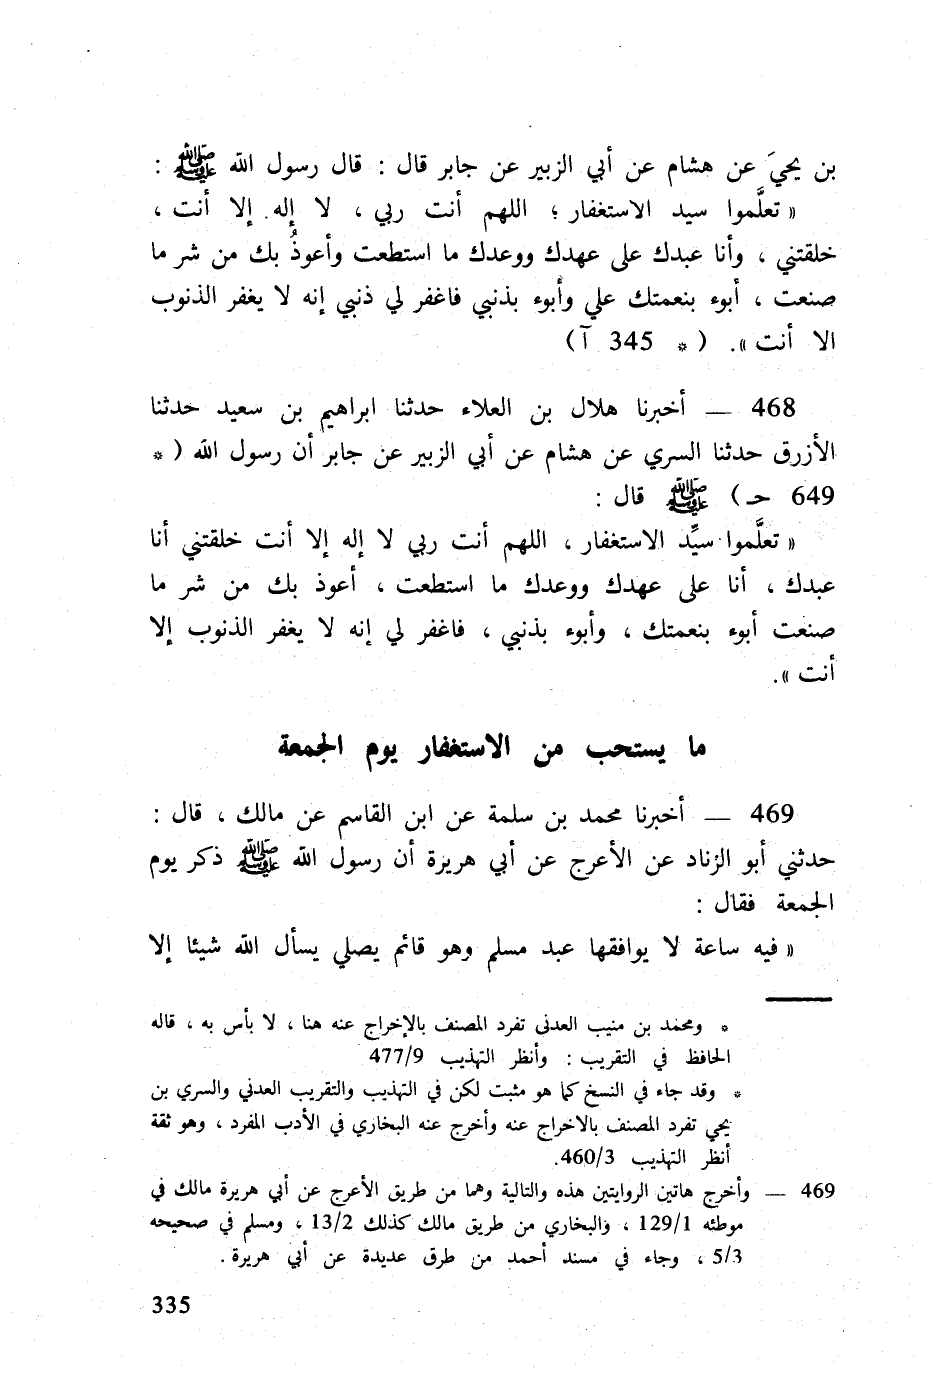 بن يحيَ عن هشام عن أبي الزبير عن جابر قال : قال رسول الله ﷺ :
« تعلَّموا سيد الاستغفار ؛ اللهم أنت ربي ، لا إله إلا أنت ،
خلقتني ، وأنا عبدك على عهدك ووعدك ما استطعت وأعوذُ بك من شر ما
صنعت ، أبوء بنعمتك علي وأبوء بذنبي فاغفر لي ذنبي إنه لا يغفر الذنوب
الا أنت ». ( * 345 آ )
468 — أخبرنا هلال بن العلاء حدثنا ابراهيم بن سعيد حدثنا
الأزرق حدثنا السري عن هشام عن أبي الزبير عن جابر أن رسول الله ( *
649 حـ ) ﷺ قال :
« تعلَّموا سيِّد الاستغفار ، اللهم أنت ربي لا إله إلا أنت خلقتني أنا
عبدك ، أنا على عهدك ووعدك ما استطعت ، أعوذ بك من شر ما
صنعت أبوء بنعمتك ، وأبوء بذنبي ، فاغفر لي إنه لا يغفر الذنوب إلا
أنت ».
ما يستحب من الاستغفار يوم الجمعة
469 — أخبرنا محمد بن سلمة عن ابن القاسم عن مالك ، قال :
حدثني أبو الزناد عن الأعرج عن أبي هريرة أن رسول الله ﷺ ذكر يوم
الجمعة فقال :
« فيه ساعة لا يوافقها عبد مسلم وهو قائم يصلي يسأل الله شيئا إلا
* ومحمد بن منيب العدني تفرد المصنف بالإخراج عنه هنا ، لا بأس به ، قاله
الحافظ في التقريب : وأنظر التهذيب 477/9
* وقد جاء في النسخ كما هو مثبت لكن في التهذيب والتقريب العدني والسري بن
يحي تفرد المصنف بالاخراج عنه وأخرج عنه البخاري في الأدب المفرد ، وهو ثقة
أنظر التهذيب 460/3.
469 — وأخرج هاتين الروايتين هذه والتالية وهما من طريق الأعرج عن أبي هريرة مالك في
موطئه 129/1 ، والبخاري من طريق مالك كذلك 13/2 ، ومسلم في صحيحه
5/3 ، وجاء في مسند أحمد من طرق عديدة عن أبي هريرة .
335